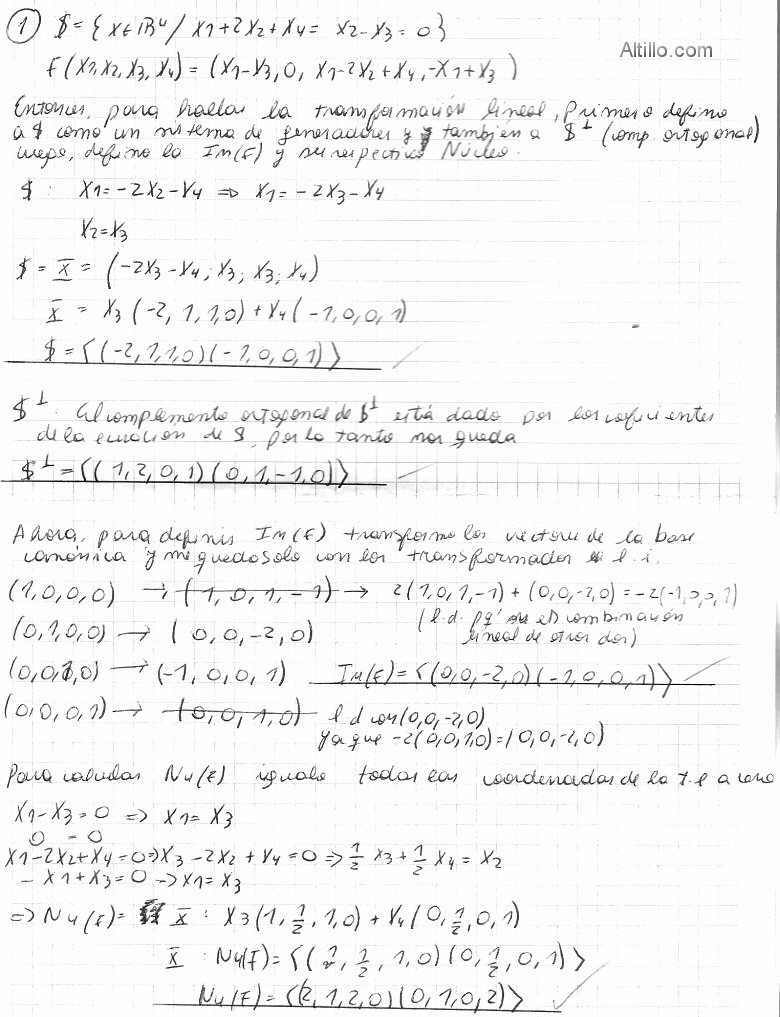 ① $ = { x ∈ IR⁴ / X1+2X2+X4 = X2-X3 = 0 }
Altillo.com
F(X1,X2,X3,X4) = (X1-X3, 0, X1-2X2+X4, -X1+X3)
Entonces, para hallar la transformación lineal, primero defino
a $ como un sistema de generadores y también a $⊥ (comp. ortogonal)
luego, defino la Im(F) y su respectivo Núcleo.
$ : X1 = -2X2-X4 ⇒ X1 = -2X3-X4
X2 = X3
$ = X = (-2X3-X4, X3, X3, X4)
X = X3(-2, 1, 1, 0) + X4(-1, 0, 0, 1)
$ = <(-2,1,1,0)(-1,0,0,1)>
$⊥ : El complemento ortogonal de $⊥ está dado por los coeficientes
de la ecuación de $, por lo tanto nos queda
$⊥ = <(1,2,0,1)(0,1,-1,0)>
Ahora, para definir Im(F) transformo los vectores de la base
canónica y me quedo solo con los transformados l.i.
(1,0,0,0) → (1,0,1,-1) → 2(1,0,1,-1) + (0,0,-2,0) = -2(-1,0,0,1)
(l.d. pq' es combinación
(0,1,0,0) → (0,0,-2,0) lineal de otros dos)
(0,0,1,0) → (-1,0,0,1) Im(F) = <(0,0,-2,0)(-1,0,0,1)>
(0,0,0,1) → (0,0,1,0) l.d con (0,0,-2,0)
ya que -2(0,0,1,0) = (0,0,-2,0)
Para calcular Nu(F) igualo todas las coordenadas de la T.L a cero
X1-X3 = 0 ⇒ X1 = X3
0 = 0
X1-2X2+X4 = 0 ⇒ X3-2X2+X4 = 0 ⇒ 1/2 X3 + 1/2 X4 = X2
-X1+X3 = 0 → X1 = X3
⇒ Nu(F) = X : X3(1, 1/2, 1, 0) + X4(0, 1/2, 0, 1)
X : Nu(F) = <(1, 1/2, 1, 0)(0, 1/2, 0, 1)>
Nu(F) = <(2,1,2,0)(0,1,0,2)>